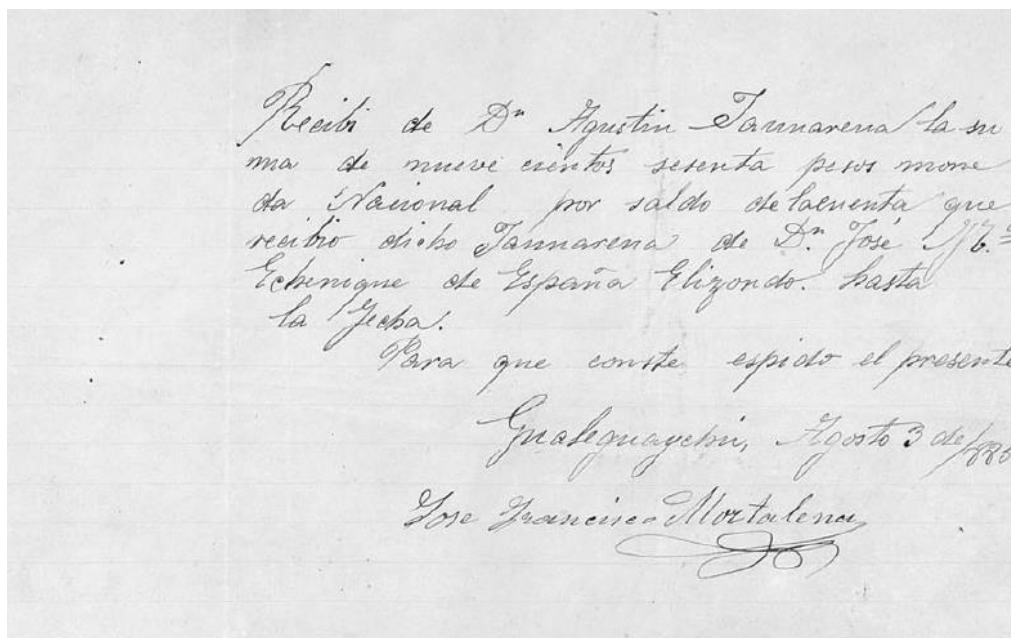 Recibi de Dn Agustin Jaunarena la su
ma de nueve cientos sesenta pesos mone
da Nacional por saldo de lacuenta que
recibio dicho Jaunarena de Dn José
Echenique de España Elizondo. hasta
la fecha.
Para que conste espido el presente
Gualeguaychú, Agosto 3 de
Jose Francisco Mortalena